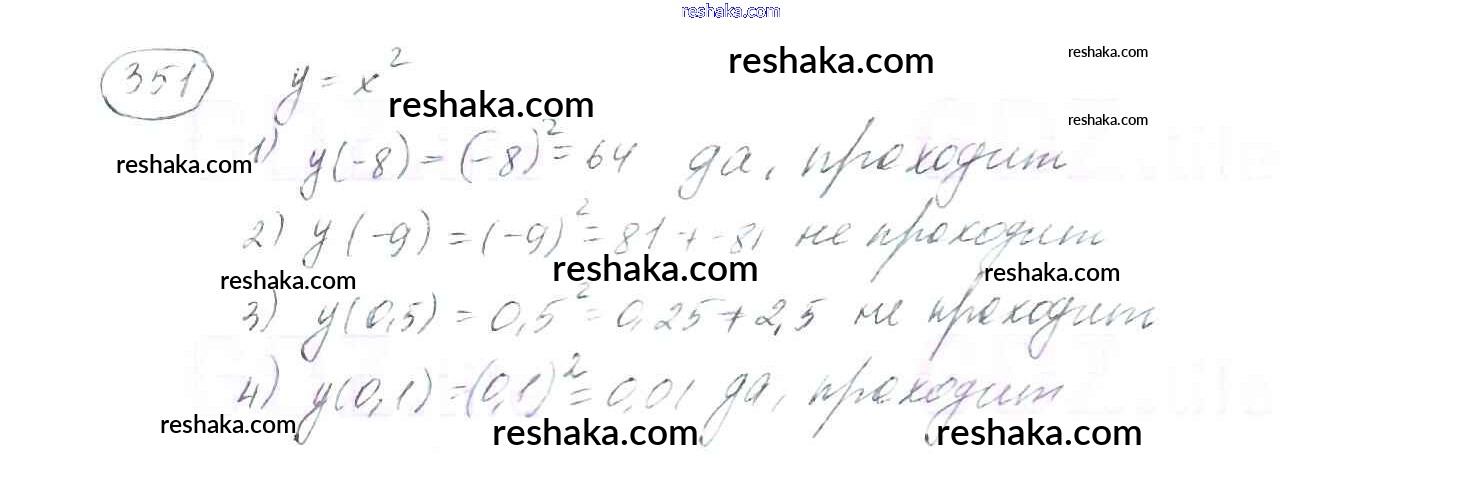 reshaka.com
351 y = x² reshaka.com reshaka.com
reshaka.com reshaka.com
reshaka.com 1) y(-8) = (-8)² = 64 да, проходит
2) y(-9) = (-9)² = 81 ≠ -81 не проходит
reshaka.com reshaka.com reshaka.com
3) y(0,5) = 0,5² = 0,25 ≠ 2,5 не проходит
4) y(0,1) = (0,1)² = 0,01 да, проходит
reshaka.com reshaka.com reshaka.com